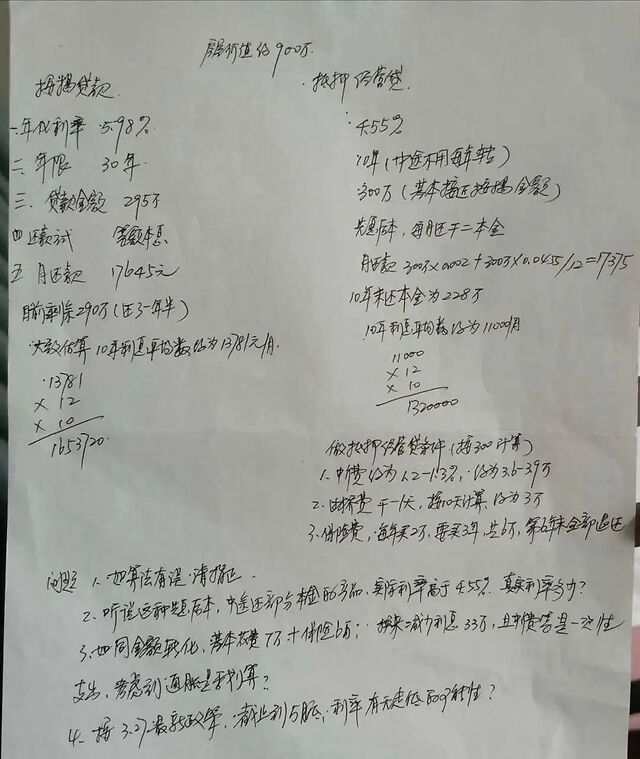 房屋价值约900万.
按揭贷款
一.年化利率 5.98%
二.年限 30年.
三.贷款金额 295万
四 还款方式 等额本息
五 月还款 17645元
目前剩余290万(还了一年半)
大致估算10年利息平均数约为13781元/月.
13781
× 12
× 10
1653720.
抵押经营贷.
4.55%
10年(中途不用每年转)
300万(基本接近按揭金额)
先息后本,每月还千二本金
月还款 300万×0.002+300万×0.0455/12=17375
10年末还本金为228万
10年利息平均数约为11000/月
11000
× 12
× 10
1320000
做抵押经营贷条件(按300计算)
1.中介费约为1.2-1.3%,约为3.6-39万
2.由桥费 千一1天,按10天计算,约为3万
3.保险费,每年买2万,要买3年,共6万,第6年末全部退还
问题 1.如算法有误.请指正.
2.听说这种先息后本,中途还部分本金的产品,实际利率高于4.55%,真实利率多少?
3.如同金额转化,基本花费7万+保险6万;换来减少利息33万,且中介费等是一次性
支出,考虑到通胀是否划算?
4.按3.27最新政策,利率有无走低的可能性?